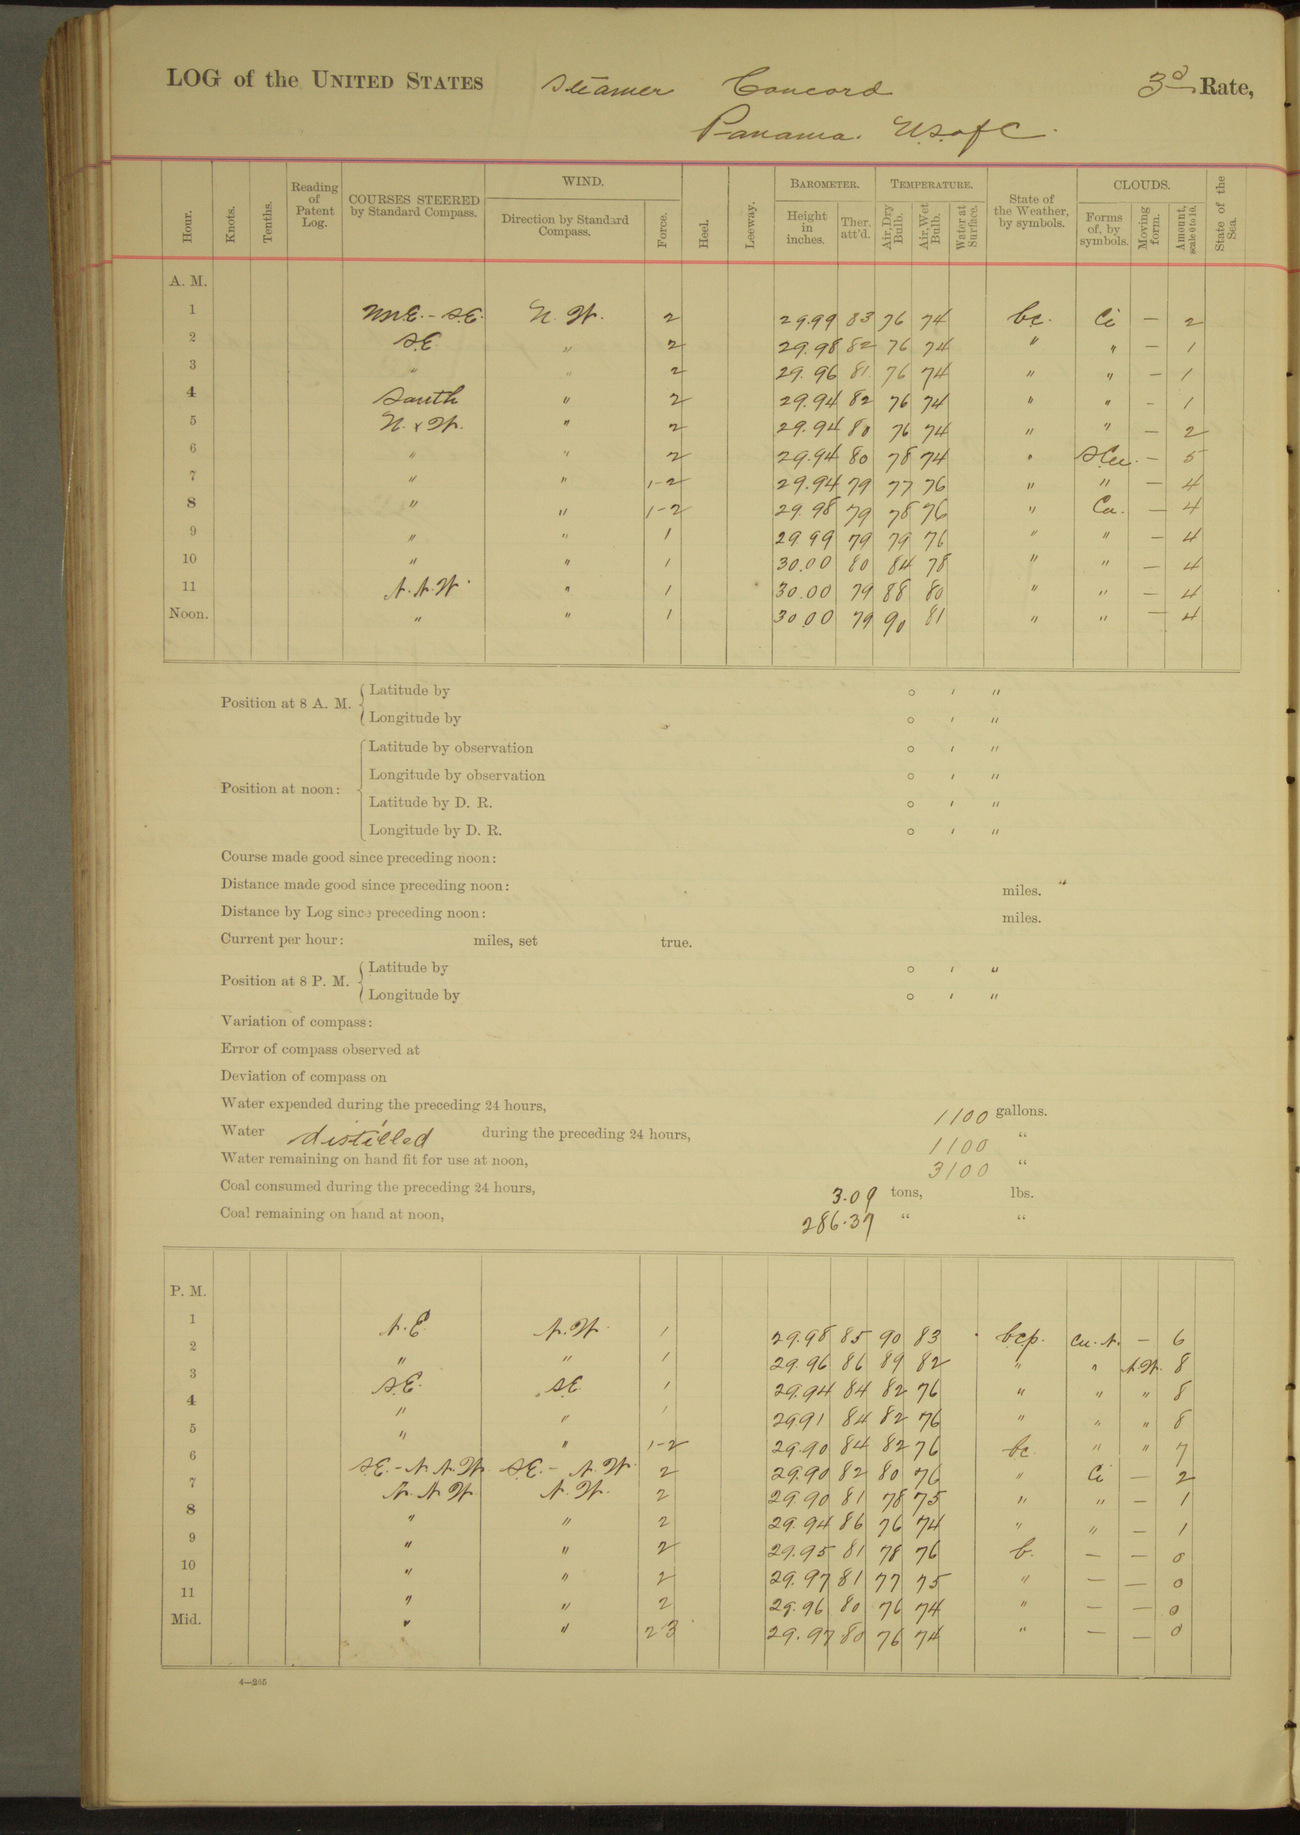 LOG of the UNITED STATES Steamer Concord 3d Rate,
Panama. U.S. of C.
Hour. Knots. Tenths. Reading of Patent Log. COURSES STEERED by Standard Compass. WIND. Direction by Standard Compass. Force. Heel. Leeway. BAROMETER. Height in inches. Ther. att'd. TEMPERATURE. Air, Dry Bulb. Air, Wet Bulb. Water at Surface. State of the Weather, by symbols. CLOUDS. Forms of, by symbols. Moving form. Amount, scale 0 to 10. State of the Sea.
A. M.
1 NNE.-S.E. N. W. 2 29.99 83 76 74 bc. Ci — 2
2 S.E. " 2 29.98 82 76 74 " " — 1
3 " " 2 29.96 81 76 74 " " — 1
4 South " 2 29.94 82 76 74 " " - 1
5 N. x W. " 2 29.94 80 76 74 " " — 2
6 " " 2 29.94 80 78 74 " S.Cu. — 5
7 " " 1-2 29.94 79 77 76 " " — 4
8 " " 1-2 29.98 79 78 76 " Cu. — 4
9 " " 1 29 99 79 79 76 " " — 4
10 " " 1 30.00 80 84 78 " " — 4
11 N.N.W. " 1 30.00 79 88 80 " " — 4
Noon. " " 1 30.00 79 90 81 " " — 4
Position at 8 A. M. Latitude by ° ' "
Longitude by ° ' "
Position at noon: Latitude by observation ° ' "
Longitude by observation ° ' "
Latitude by D. R. ° ' "
Longitude by D. R. ° ' "
Course made good since preceding noon:
Distance made good since preceding noon: miles.
Distance by Log since preceding noon: miles.
Current per hour: miles, set true.
Position at 8 P. M. Latitude by ° ' "
Longitude by ° ' "
Variation of compass:
Error of compass observed at
Deviation of compass on
Water expended during the preceding 24 hours, 1100 gallons.
Water distilled during the preceding 24 hours, 1100 "
Water remaining on hand fit for use at noon, 3100 "
Coal consumed during the preceding 24 hours, 3.09 tons, lbs.
Coal remaining on hand at noon, 286.37 " "
P. M.
1 N.E. N.W. 1 29.98 85 90 83 bcp. Cu. N. — 6
2 " " 1 29.96 86 89 82 " " N.W. 8
3 S.E. S.E. 1 29.94 84 82 76 " " " 8
4 " " 1 29.91 84 82 76 " " " 8
5 " " 1-2 29.90 84 82 76 bc. " " 7
6 S.E.-N.N.W. S.E.- N.W. 2 29.90 82 80 76 " Ci — 2
7 N.N.W. N.W. 2 29.90 81 78 75 " " — 1
8 " " 2 29.94 86 76 74 " " — 1
9 " " 2 29.95 81 78 76 b. — — 0
10 " " 2 29.97 81 77 75 " — — 0
11 " " 2 29.96 80 76 74 " — — 0
Mid. " " 2 3 29.97 80 76 74 " — — 0
4—205